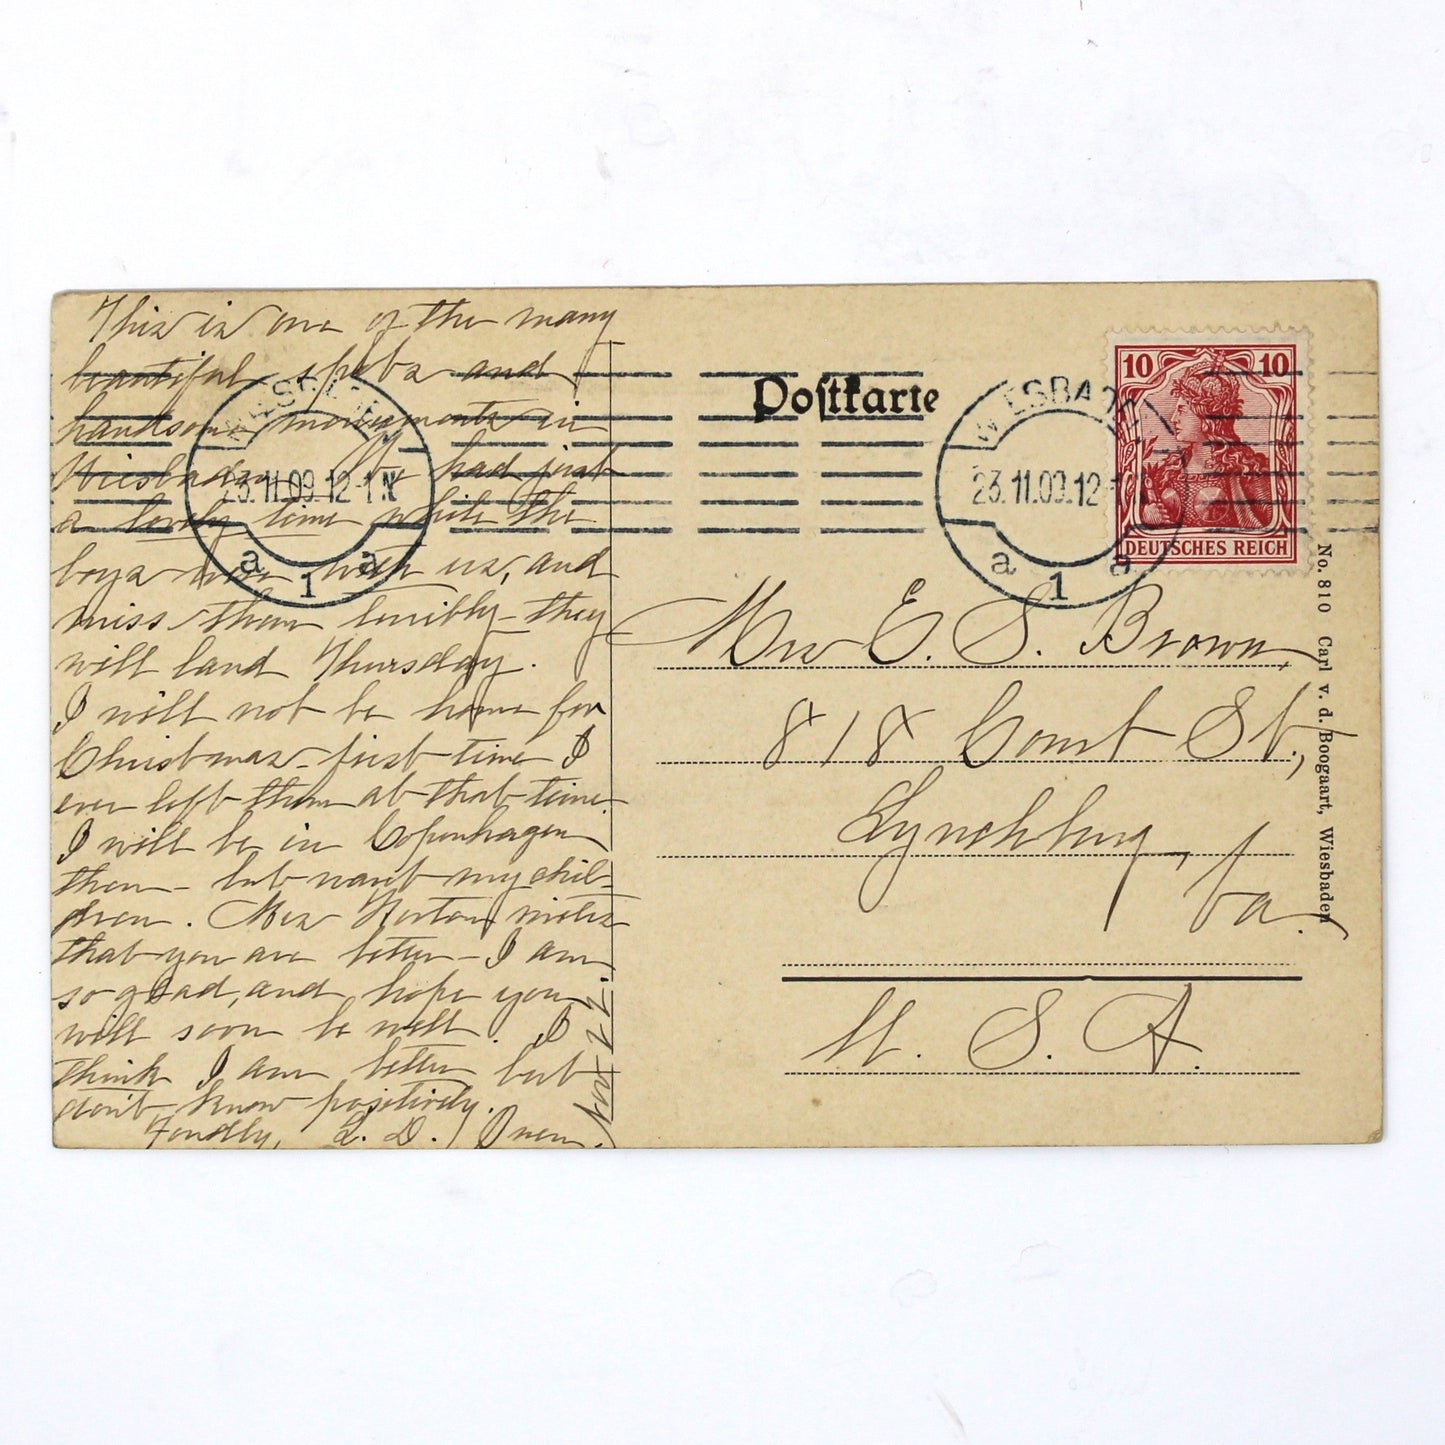 This is one of the many
beautiful spots and
handsome monuments in
Wiesbaden. We had just
a lovely time while the
boys were with us, and
miss them terribly - they
will land Thursday.
I will not be home for
Christmas - first time I
ever left them at that time.
I will be in Copenhagen
then - but want my chil-
dren. Mrs Norton writes
that you are better - I am
so glad, and hope you
will soon be well. I
think I am better but
don't know positively.
Fondly, L. D.
Nov 22.
Postkarte
WIESBADEN
23.11.09.12-1 N
a 1 a
WIESBADEN
23.11.09.12-1
a 1 a
10 10
DEUTSCHES REICH
Mrs E. S. Brown,
818 Court St.,
Lynchburg,
Va.
U. S. A.
No. 810 Carl v. d. Boogaart, Wiesbaden